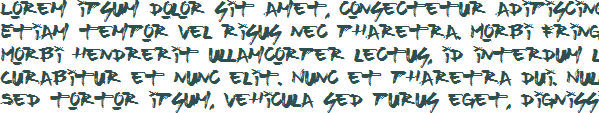 LOREM IPSUM DOLOR SIT AMET, CONSECTETUR ADIPISCING
ETIAM TEMPOR VEL RISUS NEC PHARETRA. MORBI FRING
MORBI HENDRERIT ULLAMCORPER LECTUS, ID INTERDUM L
CURABITUR ET NUNC ELIT. NUNC ET PHARETRA DUI. NULL
SED TORTOR IPSUM, VEHICULA SED PURUS EGET, DIGNISS